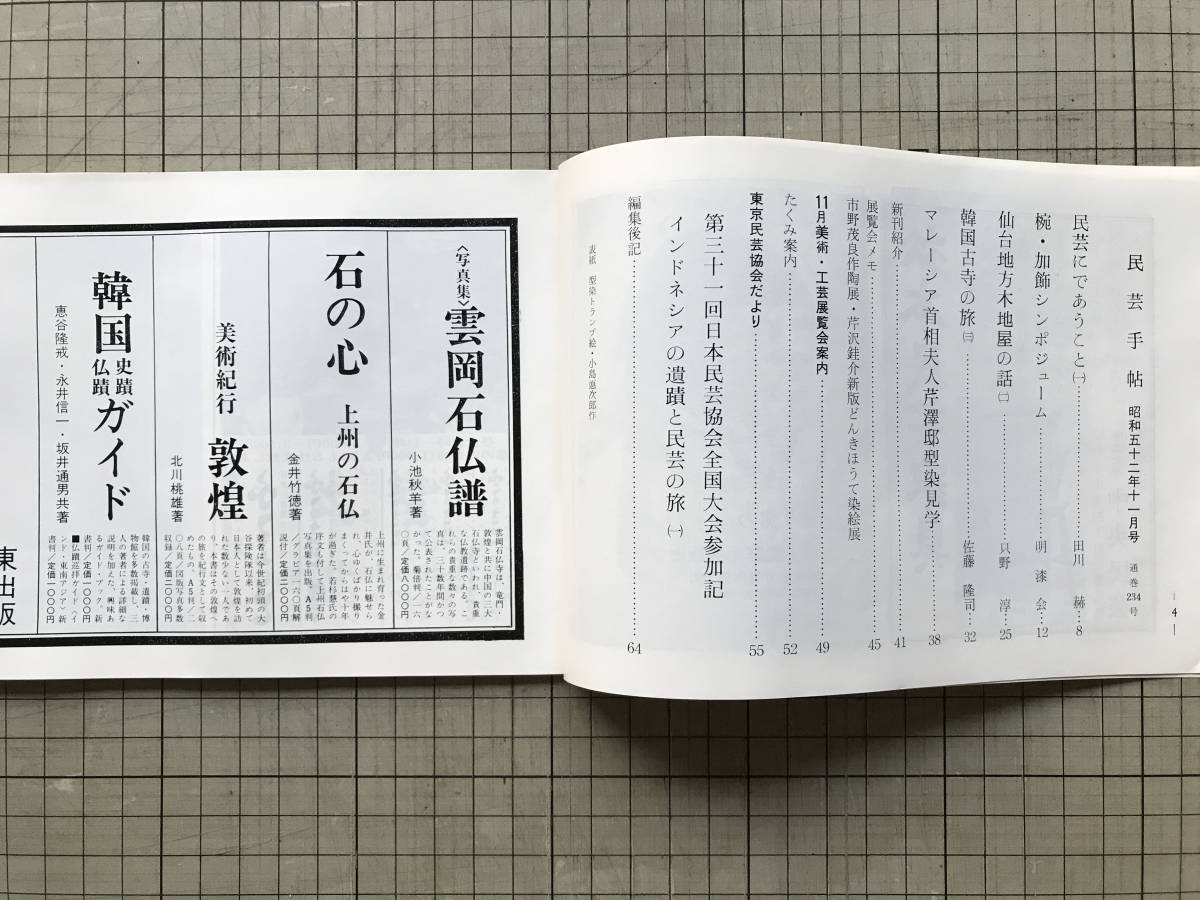 ―4―
民芸手帖 昭和五十二年十一月号 通巻234号
民芸にであうこと㈠………田川 赫…8
椀・加飾シンポジューム………明漆会…12
仙台地方木地屋の話㈡………只野 淳…25
韓国古寺の旅㈢………佐藤隆司…32
マレーシア首相夫人芹澤邸型染見学………38
新刊紹介………41
展覧会メモ………45
市野茂良作陶展・芹沢銈介新版どんきほうて染絵展
11月美術・工芸展覧会案内………49
たくみ案内………52
東京民芸協会だより………55
第三十一回日本民芸協会全国大会参加記
インドネシアの遺蹟と民芸の旅㈠
編集後記………64
表紙 型染トランプ絵・小島悳次郎作
〈写真集〉雲岡石仏譜
小池秋羊著
雲岡石仏寺は、竜門・
敦煌と共に中国の三大
石仏寺といわれ、貴重
な仏教遺跡である。こ
れらの貴重な数々の写
真は、三十数年間かつ
て公表されたことがな
かった。菊倍判/一六
〇頁/定価八〇〇〇円
石の心 上州の石仏
金井竹徳著
上州に生まれ育った金
井氏が、石仏に魅せら
れ、心ゆくばかり撮り
まくってからはや十年
が過ぎた。若杉慧氏の
序文も付して上州石仏
写真集を出版。A5判
/グラビア一六〇頁解
説付/定価二〇〇〇円
美術紀行 敦煌
北川桃雄著
著者は今世紀初頭の大
谷探険隊以来、初めて
日本人として敦煌を訪
れた数少ない一人であ
り、本書はその敦煌へ
の旅を紀行文として収
めたもの。A5判/二
〇八頁/図版写真多数
収録/定価二〇〇〇円
韓国史蹟仏蹟ガイド
恵谷隆戒・永井信一・坂井通男共著
韓国の古寺・遺蹟・博
物館を多数掲載し、三
人の著者による詳細な
説明を加えた、興味あ
るガイド・ブック。新
書判/定価一〇〇〇円
■仏蹟巡拝ガイド〈イ
ンド・東南アジア〉新
書判/定価一〇〇〇円
東出版